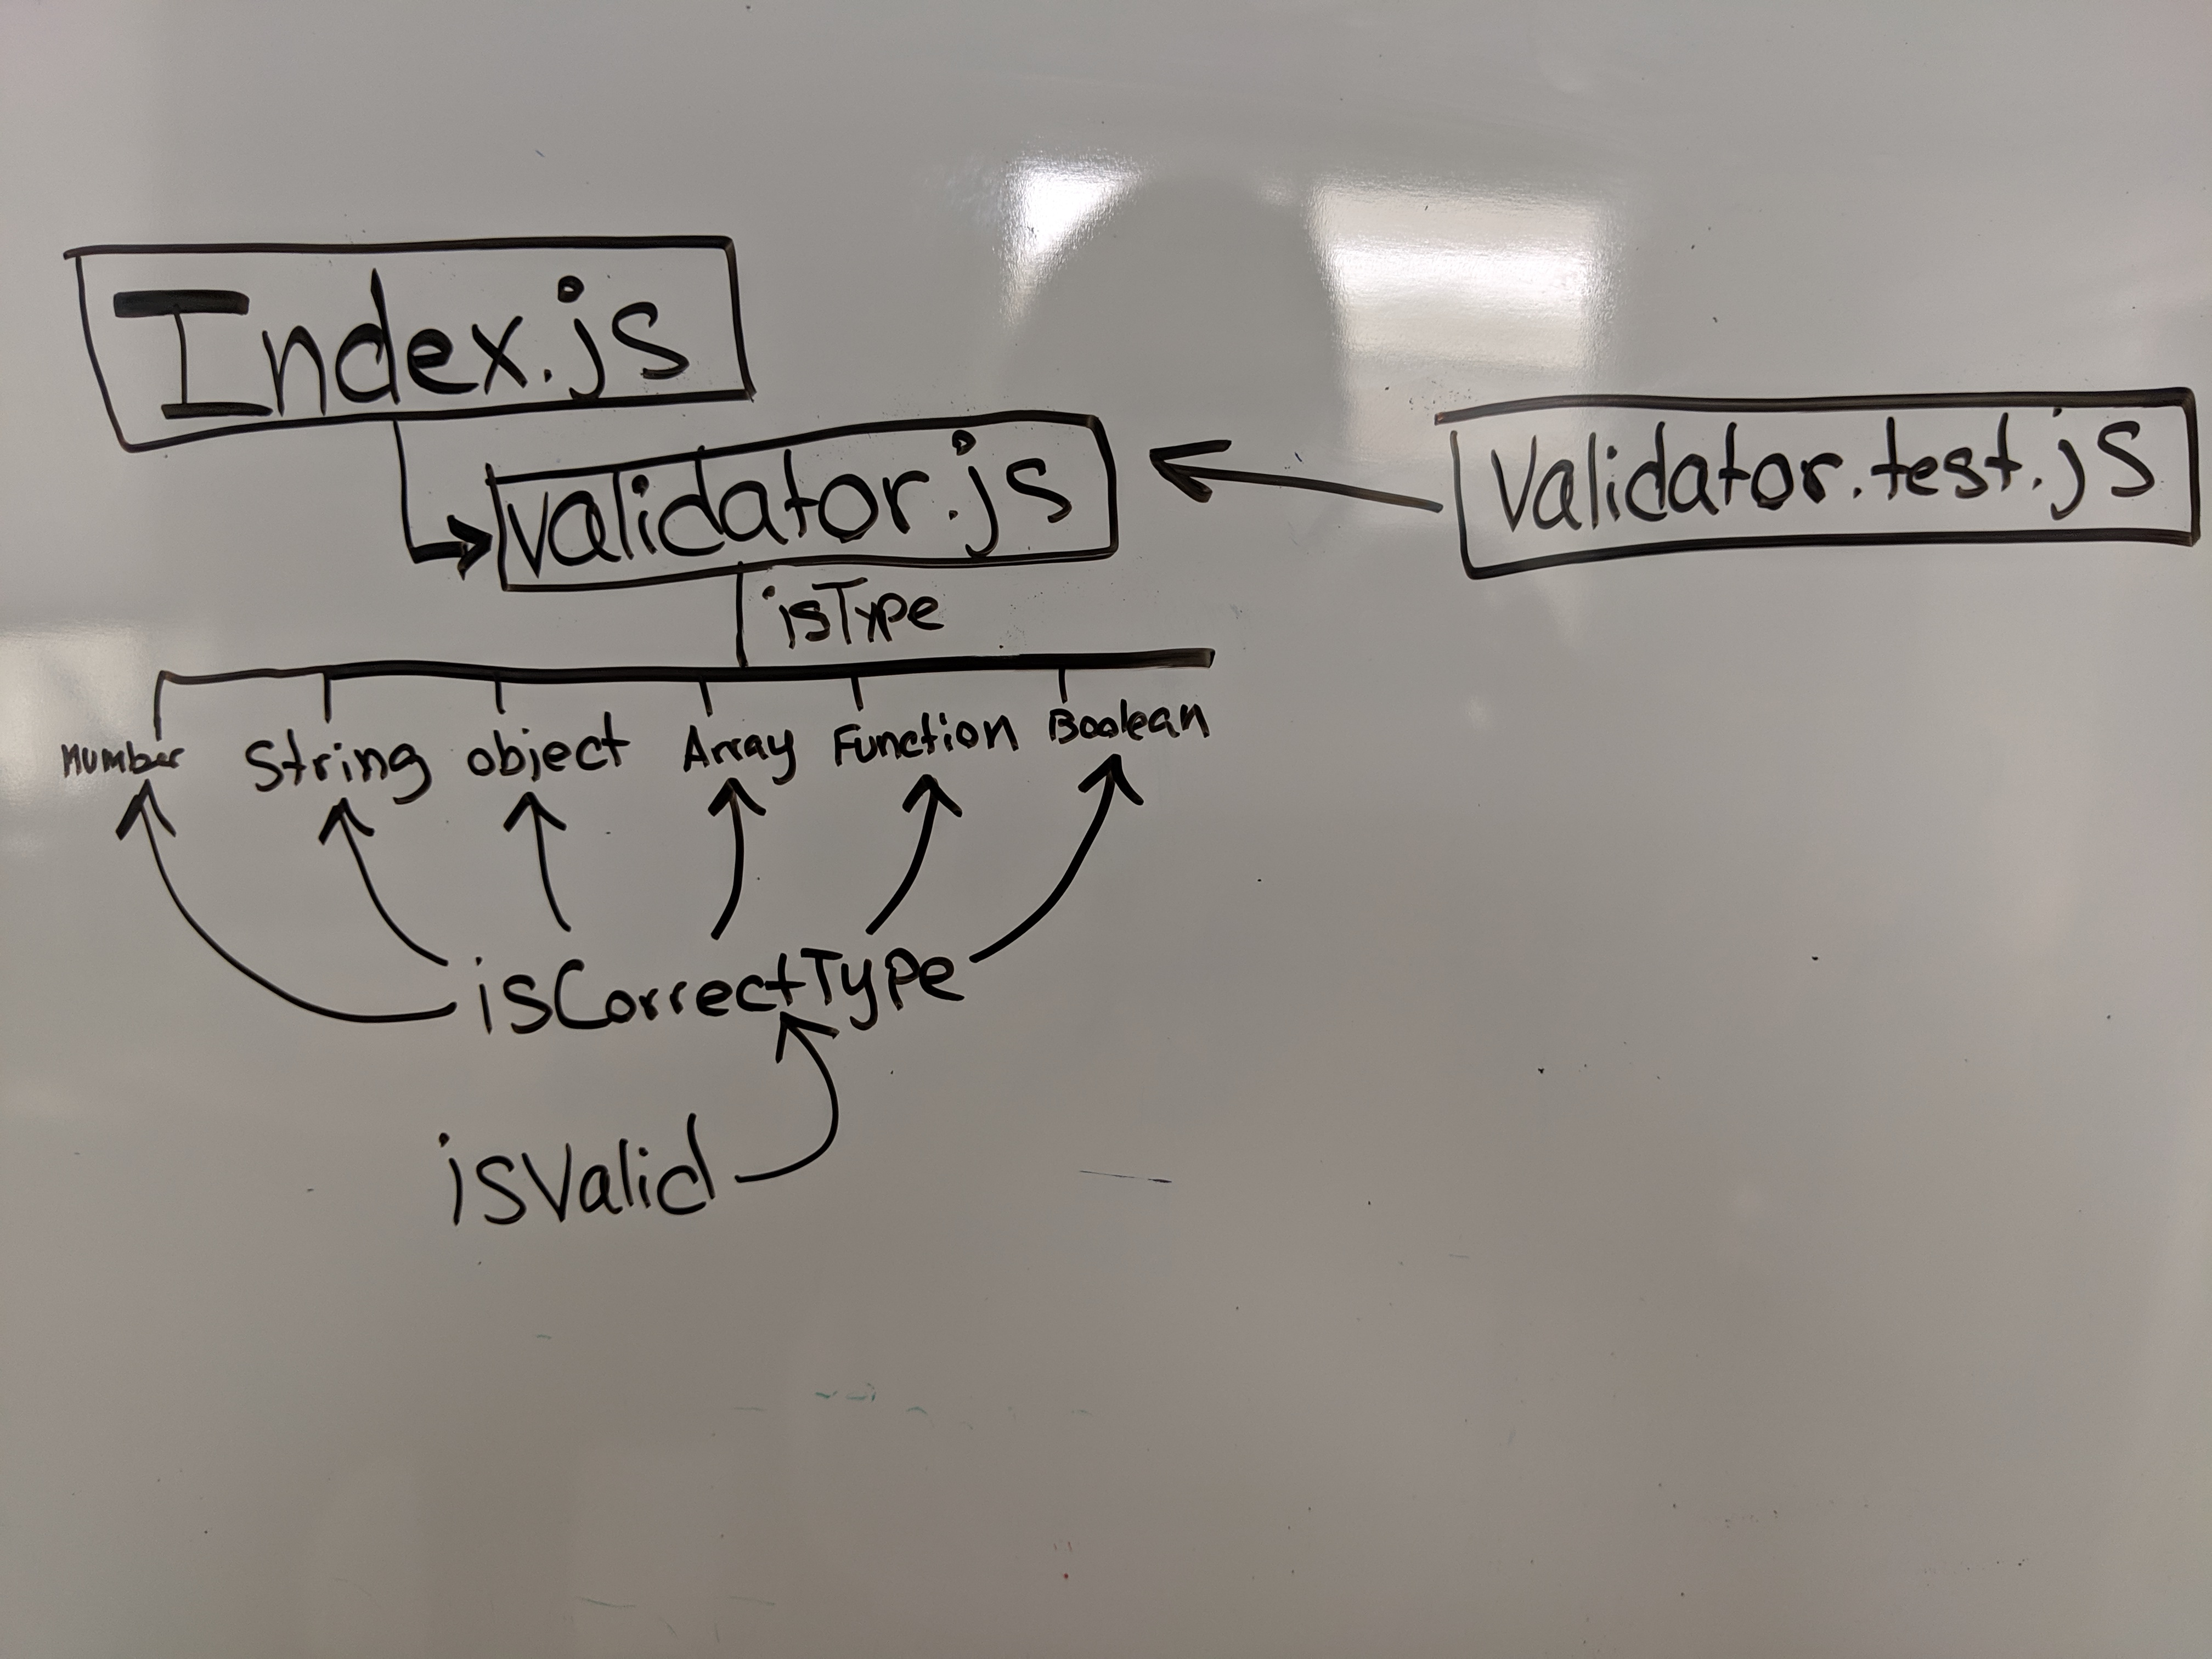 Index.js
validator.js
Validator.test.js
isType
number String object Array Function Boolean
isCorrectType
isValid